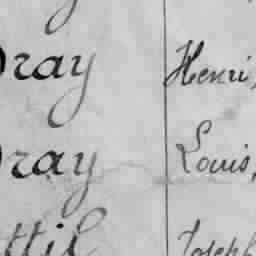 Dray Henri,
Dray Louis,
ttil Joseph